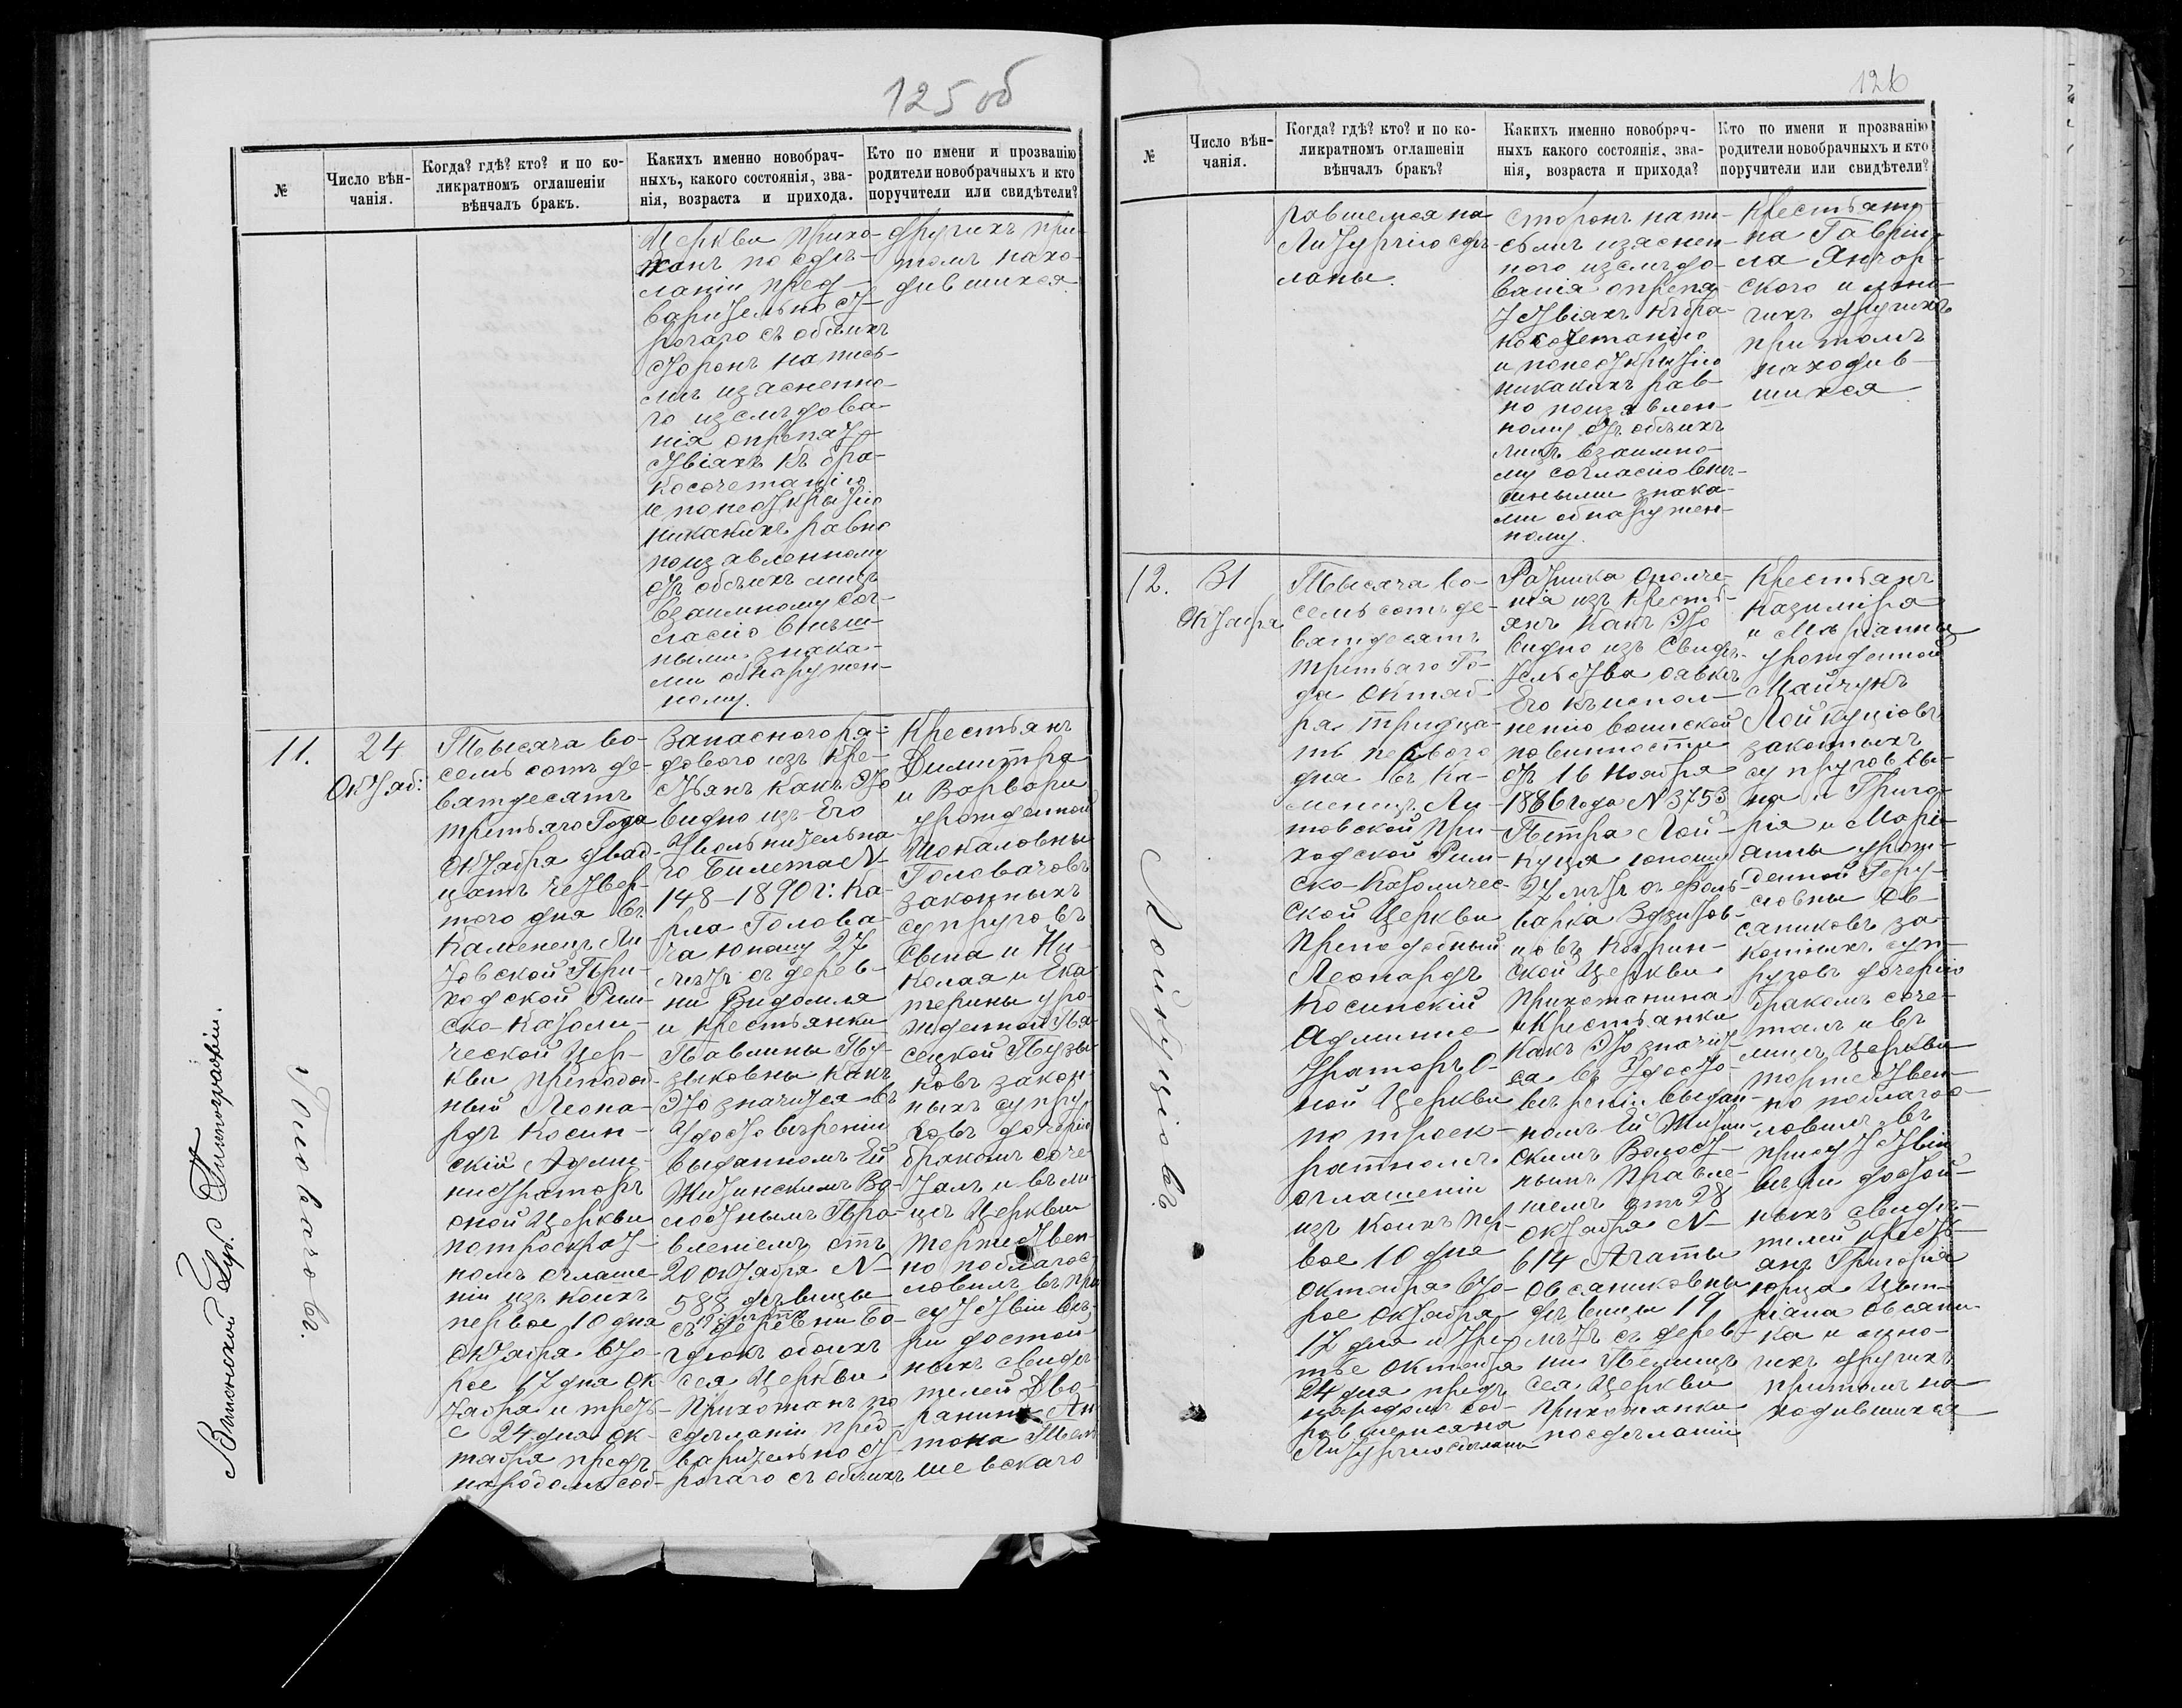 125 об
№
Число вѣн-
чанія.
Когда? гдѣ? кто? и по ко-
ликратномъ оглашеніи
вѣнчалъ бракъ.
Какихъ именно новобрач-
ныхъ, какого состоянія, зва-
нія, возраста и прихода.
Кто по имени и прозванію
родители новобрачныхъ и кто
поручители или свидѣтели?
Церкви прихо-
жанъ по сдѣ-
ланіи пред-
варительно ст-
рогаго съ обѣихъ
сторонъ на пись-
мѣ изясненно-
го изслѣдова-
нія опрепят-
ствіяхъ къ бра-
косочетанію
и понеоткрытію
никакихъ равно
поизавленному
отъ обѣихъ лицъ
взаимному сог-
ласію внѣш-
ными знака-
ми обнаружен-
ному.
другихъ при
томъ нахо-
дившихся.
11.
24
Октяб:
Головачовъ.
Тысяча во-
семьсотъ де-
вятдесятъ
третьяго Года
Октября двад-
цать четвер-
того дня въ
Каменецъ Ли
товской При-
ходской Рим-
ско-Католи-
ческой Цер-
кви преподоб-
ный Леона-
рдъ Косин-
скій Адми-
нистраторъ
оной Церкви
потроекрат-
номъ оглаше-
ніи изъ коихъ
первое 10 дня
Октября вто-
рое 17 дня Ок
тября и треть-
е 24 дня Ок-
тября предъ
народомъ соб-
Запаснаго ря-
дового изъ кре-
стьянъ какъ это
видно изъ Его
Увольнительна
го Билета N
148-1890 г: Ка-
рла Голова-
ча юношу 27
лѣтъ съ дерев-
ни Видомля
и крестьянки
Павлины Пу-
зыковны какъ
это значится въ
Удостовѣреніи
выданномъ Ей
Житинскимъ Во-
лостнымъ Пра-
вленіемъ отъ
20 Октября N
588 дѣвицы
19 лѣтъ
съ деревни Бо-
гдюкъ обоихъ
сея Церкви
Прихожанъ по
сдѣланіи пред-
варительно ст-
рогаго съ обѣихъ
Крестьянъ
Димитра
и Варвары
урожденной
Шокаловны
Головачовъ
законныхъ
супруговъ
Сына и Ни-
колая и Ека
терины уро-
жденной
сецкой Пузы-
ковъ закон-
ныхъ супру-
говъ дочерію
бракомъ соче
талъ и въ ли
цѣ Церкви
торжествен-
но поблагос-
ловилъ въ при
сутствіи вѣ-
ри достой-
ныхъ свидѣ-
телей Дво-
ранина Ан
тона
шевскаго
Виленской Губ. Типографіи.
126
№
Число вѣн-
чанія.
Когда? гдѣ? кто? и по ко-
ликратномъ оглашеніи
вѣнчалъ бракъ?
Какихъ именно новобрач-
ныхъ какого состоянія, зва-
нія, возраста и прихода?
Кто по имени и прозванію
родители новобрачныхъ и кто
поручители или свидѣтели?
равшемся на
Литургію сдѣ-
ланы.
сторонъ на пи-
сьмѣ изяснен-
ного изслѣдо-
ванія опрепя-
тствіяхъ къ бра-
косочетанію
и понеоткрытію
никакихъ рав-
но поизявлен-
ному отъ обѣихъ
лицъ взаимно-
му согласію внѣ-
шными знака-
ми обнаружен-
ному.
Крестьяни-
на Гаврии-
ла
ского и мно-
гихъ другихъ
притомъ
находив-
шихся
12.
31
Октября
Лойкуціовъ.
Тысяча во-
семьсотъ де-
вятдесятъ
третьяго Го-
да Октяб-
ря тридца-
ть первого
дня въ Ка-
менецъ Ли-
товской при-
ходской Рим-
ско-Католичес-
ской Церкви
Преподобный
Леонардъ
Косинскій
Админис-
траторъ о-
ной Церкви
по троек-
ратномъ
оглашеніи
изъ коихъ пер-
вое 10 дня
октября вто-
рое октября
17 дня и тре-
тье октября
24 дня предъ
народомъ соб-
равшемся на
Литургію сдѣланы
Ратника ополче-
нія изъ кресть-
янъ какъ это
видно изъ Свидѣ-
тельства оявкѣ
Его къ испол-
ненію воинской
повинности
отъ 16 Ноября
1886 года N 3753
Петра Лой-
куця юношу
27 лѣтъ съ фоль-
варка
цовъ Кобрин-
ской Церкви
Прихожанина
и Крестьянки
какъ это значит
ся въ Удосто-
вѣреніи выдан-
номъ Ей Житин
скимъ Волост-
нымъ Правле-
ніемъ отъ 28
октября N
614 Агаты
Овсаниковны
дѣвицы 19
лѣтъ съ дерев-
ни Пелищъ
сея Церкви
Прихожанки
посдѣланіи
Крестьянъ
Казиміра
и Маріанны
урожденной
Майчукъ
Лойкуціовъ
законныхъ
супруговъ Сы-
на и Григо-
рія и Марі-
анны урож-
денной Геру-
совны Ов-
саниковъ за-
конныхъ суп-
руговъ дочерію
бракомъ соче-
талъ и въ
лицѣ Церкви
торжествен-
но поблагос-
ловилъ въ
присутствіи
вѣри достой-
ныхъ свидѣ-
телей Кресть-
янъ Григорія
юрца Цып-
ріана Овсани-
ка и мно-
гихъ другихъ
притомъ на
ходившихся